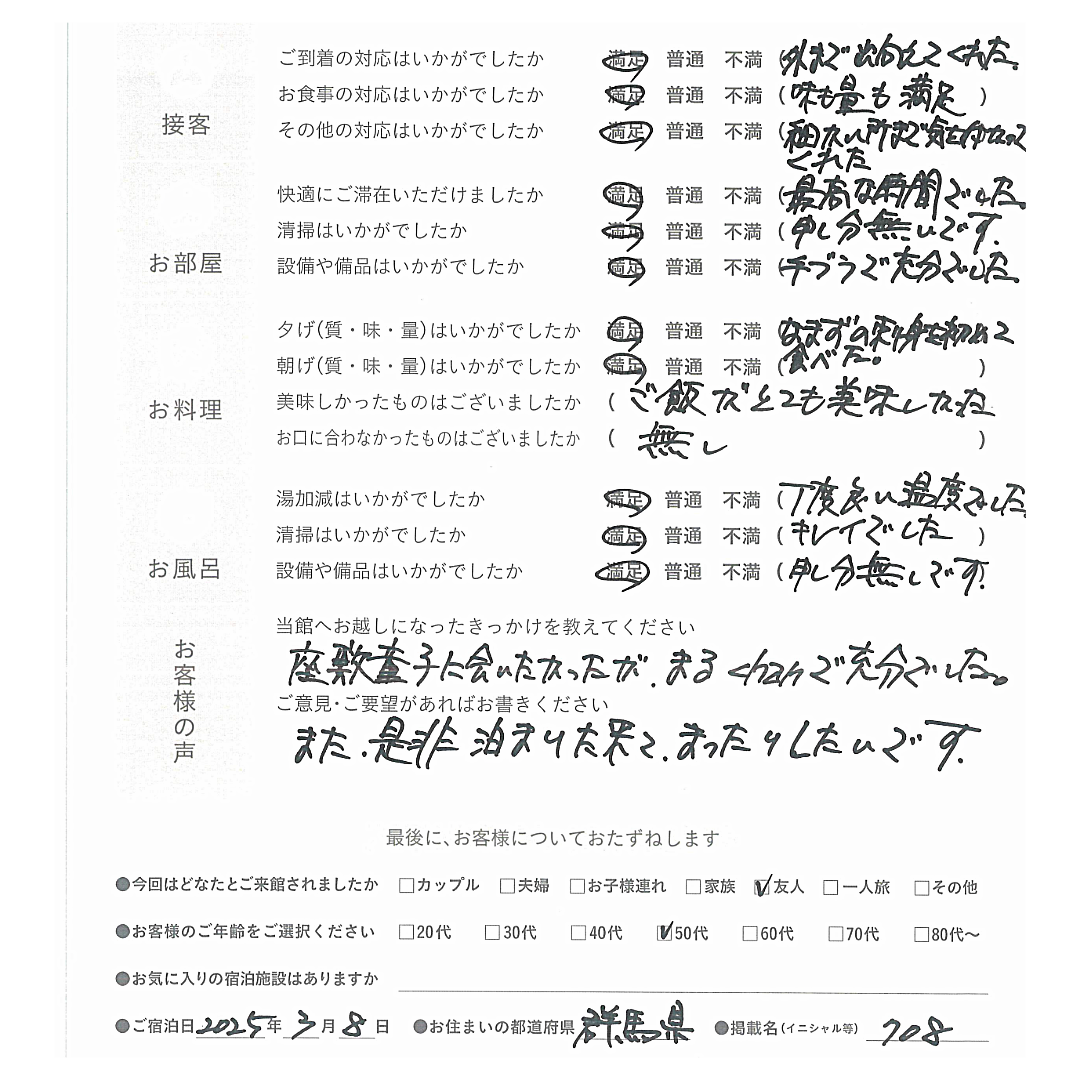 接客
ご到着の対応はいかがでしたか 満足 普通 不満 (外まで出向えてくれた。
お食事の対応はいかがでしたか 満足 普通 不満 (味も量も満足)
その他の対応はいかがでしたか 満足 普通 不満 (細かい所まで気を使って
くれた
お部屋
快適にご滞在いただけましたか 満足 普通 不満 (最高な時間でした。
清掃はいかがでしたか 満足 普通 不満 (申し分無いです。
設備や備品はいかがでしたか 満足 普通 不満 (手ブラで充分でした。
お料理
夕げ(質・味・量)はいかがでしたか 満足 普通 不満 なまずの刺身を初めて
朝げ(質・味・量)はいかがでしたか 満足 普通 不満 (食べた。)
美味しかったものはございましたか (ご飯がとても美味しかった
お口に合わなかったものはございましたか (無し)
お風呂
湯加減はいかがでしたか 満足 普通 不満 (丁度良い温度でした
清掃はいかがでしたか 満足 普通 不満 (キレイでした)
設備や備品はいかがでしたか 満足 普通 不満 (申し分無しです。)
お客様の声
当館へお越しになったきっかけを教えてください
座敷童子に会いたかったが、まるchanで充分でした。
ご意見・ご要望があればお書きください
また、是非泊まりた来て、まったりしたいです。
最後に、お客様についておたずねします
●今回はどなたとご来館されましたか □カップル □夫婦 □お子様連れ □家族 ☑友人 □一人旅 □その他
●お客様のご年齢をご選択ください □20代 □30代 □40代 ☑50代 □60代 □70代 □80代～
●お気に入りの宿泊施設はありますか
●ご宿泊日2025年3月8日 ●お住まいの都道府県 群馬県 ●掲載名(イニシャル等) 708